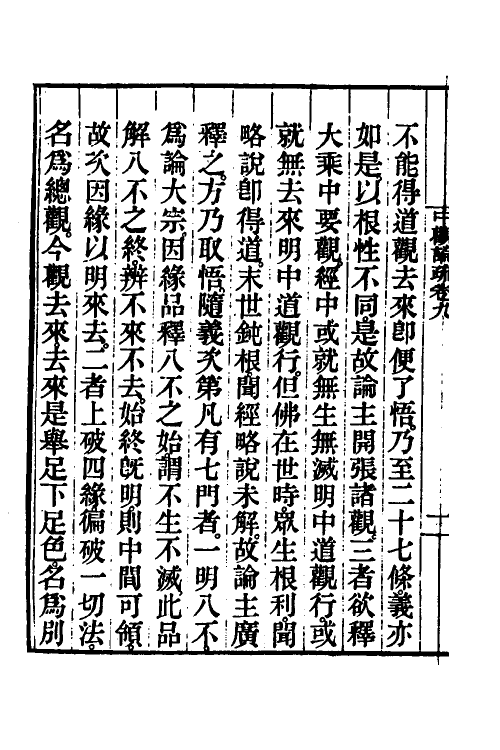 中觀論疏卷九
十一
不能得道觀去來卽便了悟。乃至二十七條。義亦
如是。以根性不同。是故論主開張諸觀。三者欲釋
大乘中要觀。經中或就無生無滅明中道觀行。或
就無去來明中道觀行。但佛在世時。眾生根利。聞
略說卽得道。末世鈍根。聞經略說未解。故論主廣
釋之。方乃取悟。隨義次第凡有七門者。一明八不
爲論大宗。因緣品釋八不之始。謂不生不滅此品
解八不之終。辨不來不去。始終既明。則中間可領。
故次因緣以明來去。二者上破四緣。徧破一切法。
名爲總觀。今觀去來去來是舉足下足色。名爲別